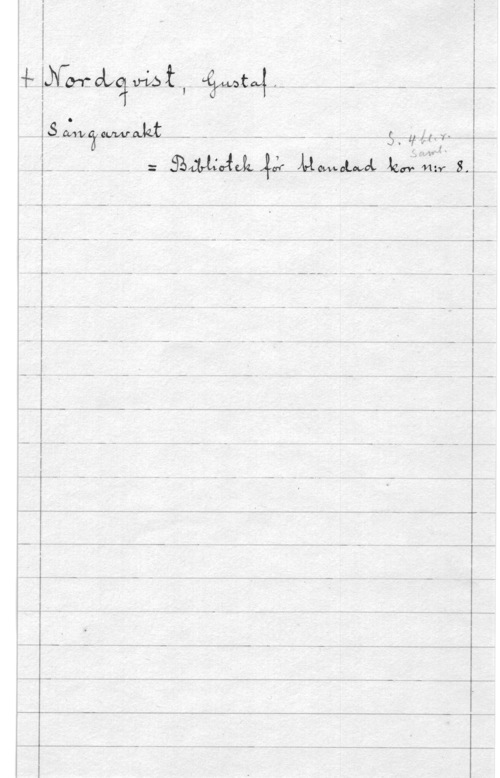 + Nordqvist, Gustaf.
Sångarvakt
S. 4 bl. r.
Saml.
= Bibliotek för blandad kor n:r 8.